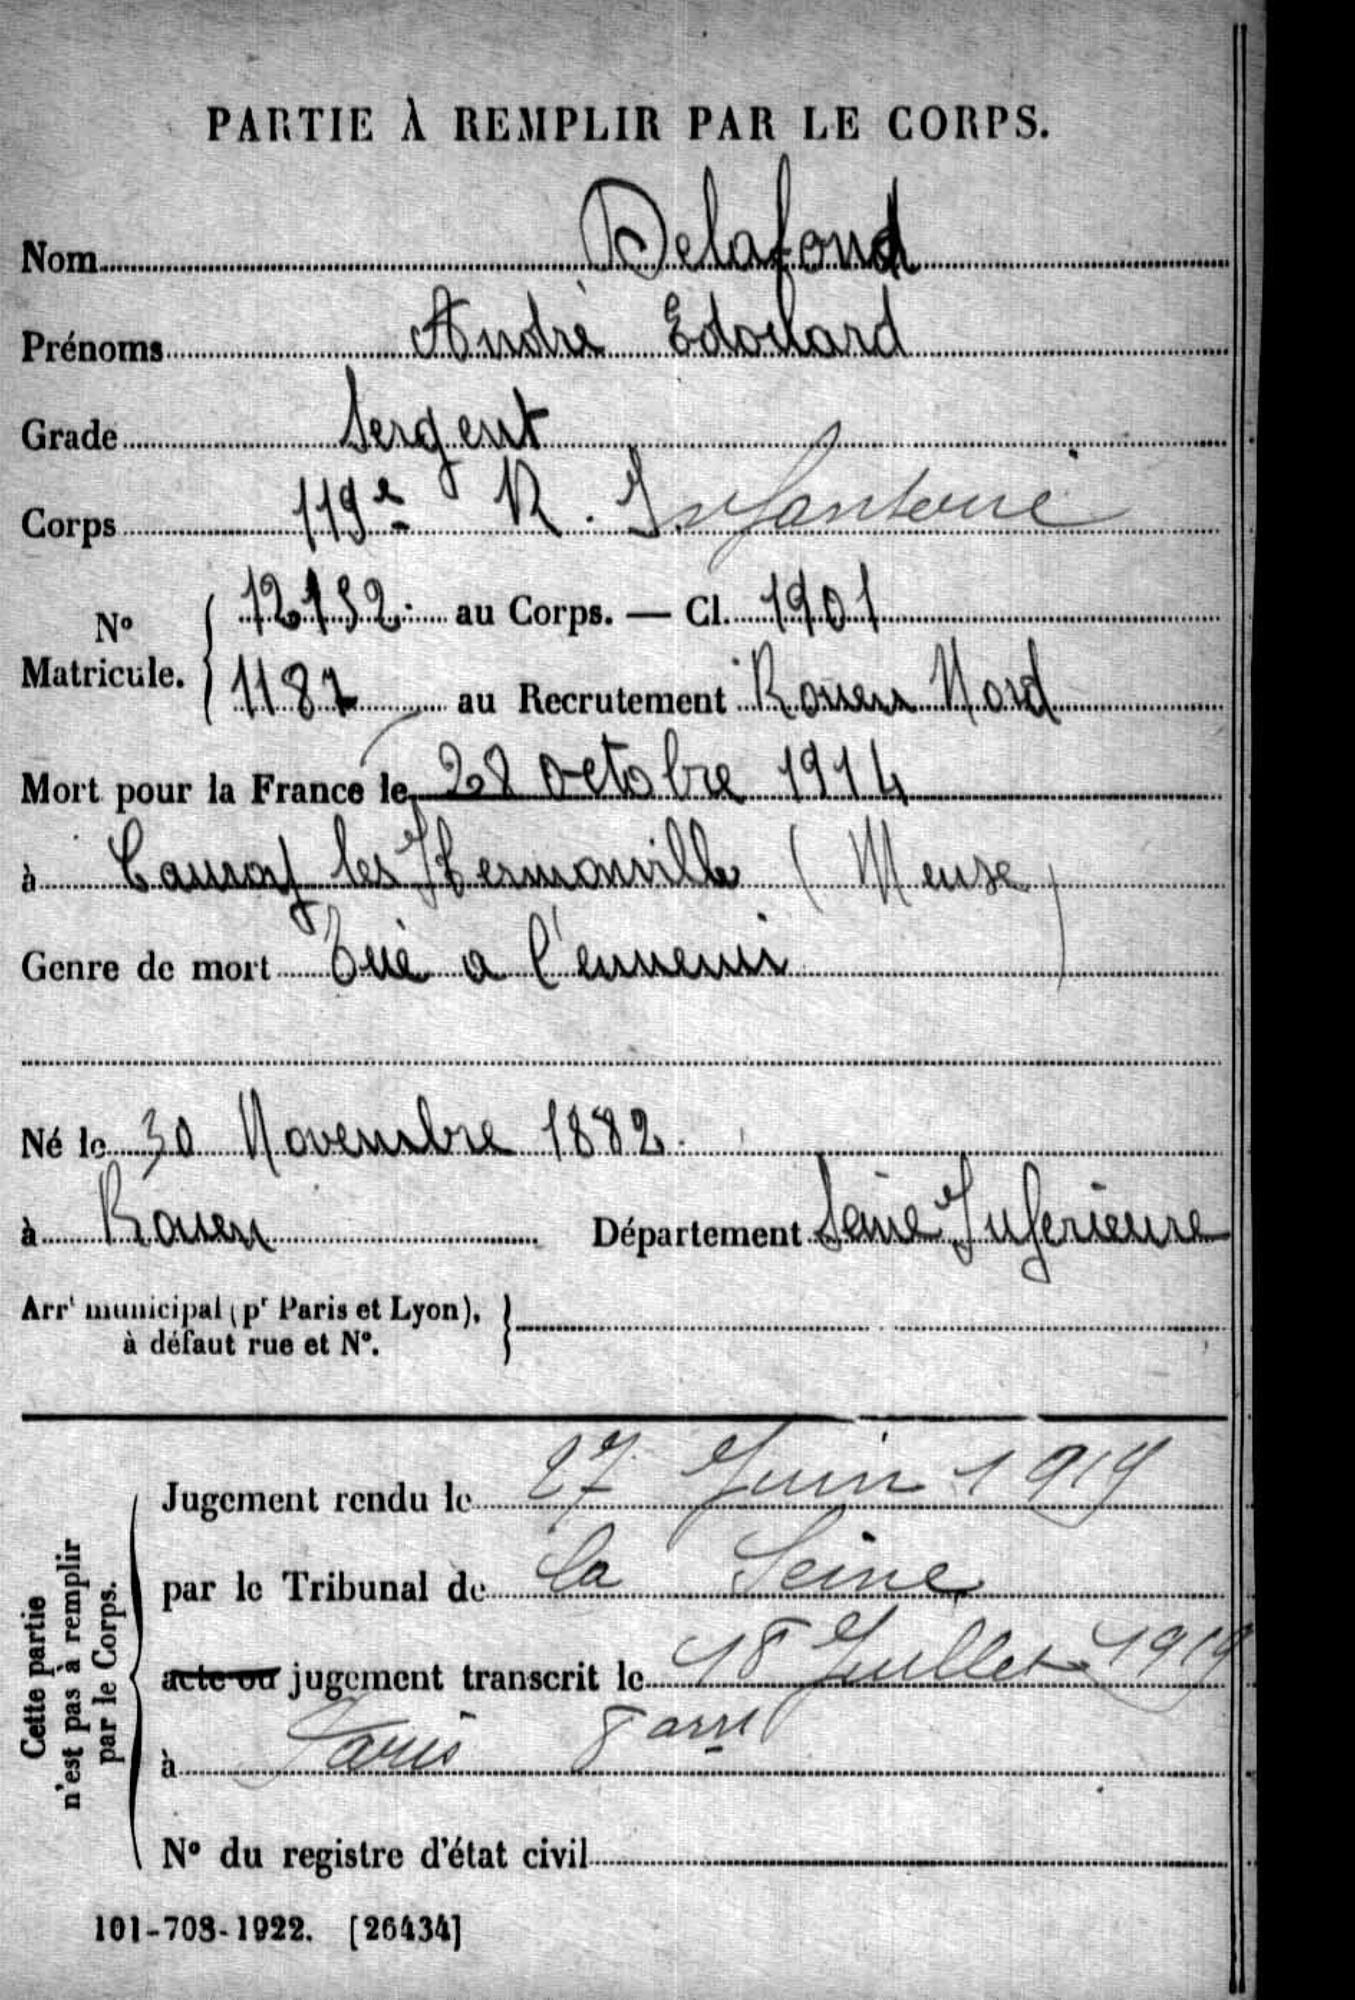 PARTIE À REMPLIR PAR LE CORPS.
Nom Delafond
Prénoms André Edouard
Grade Sergent
Corps 119e R. Infanterie
No Matricule. 12132 au Corps. — Cl. 1901
1187 au Recrutement Rouen Nord
Mort pour la France le 28 octobre 1914
à Cauroy les Hermonville (Meuse)
Genre de mort Tué a l'ennemi
Né le 30 Novembre 1882.
à Rouen Département Seine Inferieure
Arrt municipal (pr Paris et Lyon),
à défaut rue et No.
Cette partie
n'est pas à remplir
par le Corps.
Jugement rendu le 27 Juin 1919
par le Tribunal de la Seine
acte ou jugement transcrit le 18 Juillet 1919
à Paris 8 arrt
No du registre d'état civil
101-708-1922. [26434]